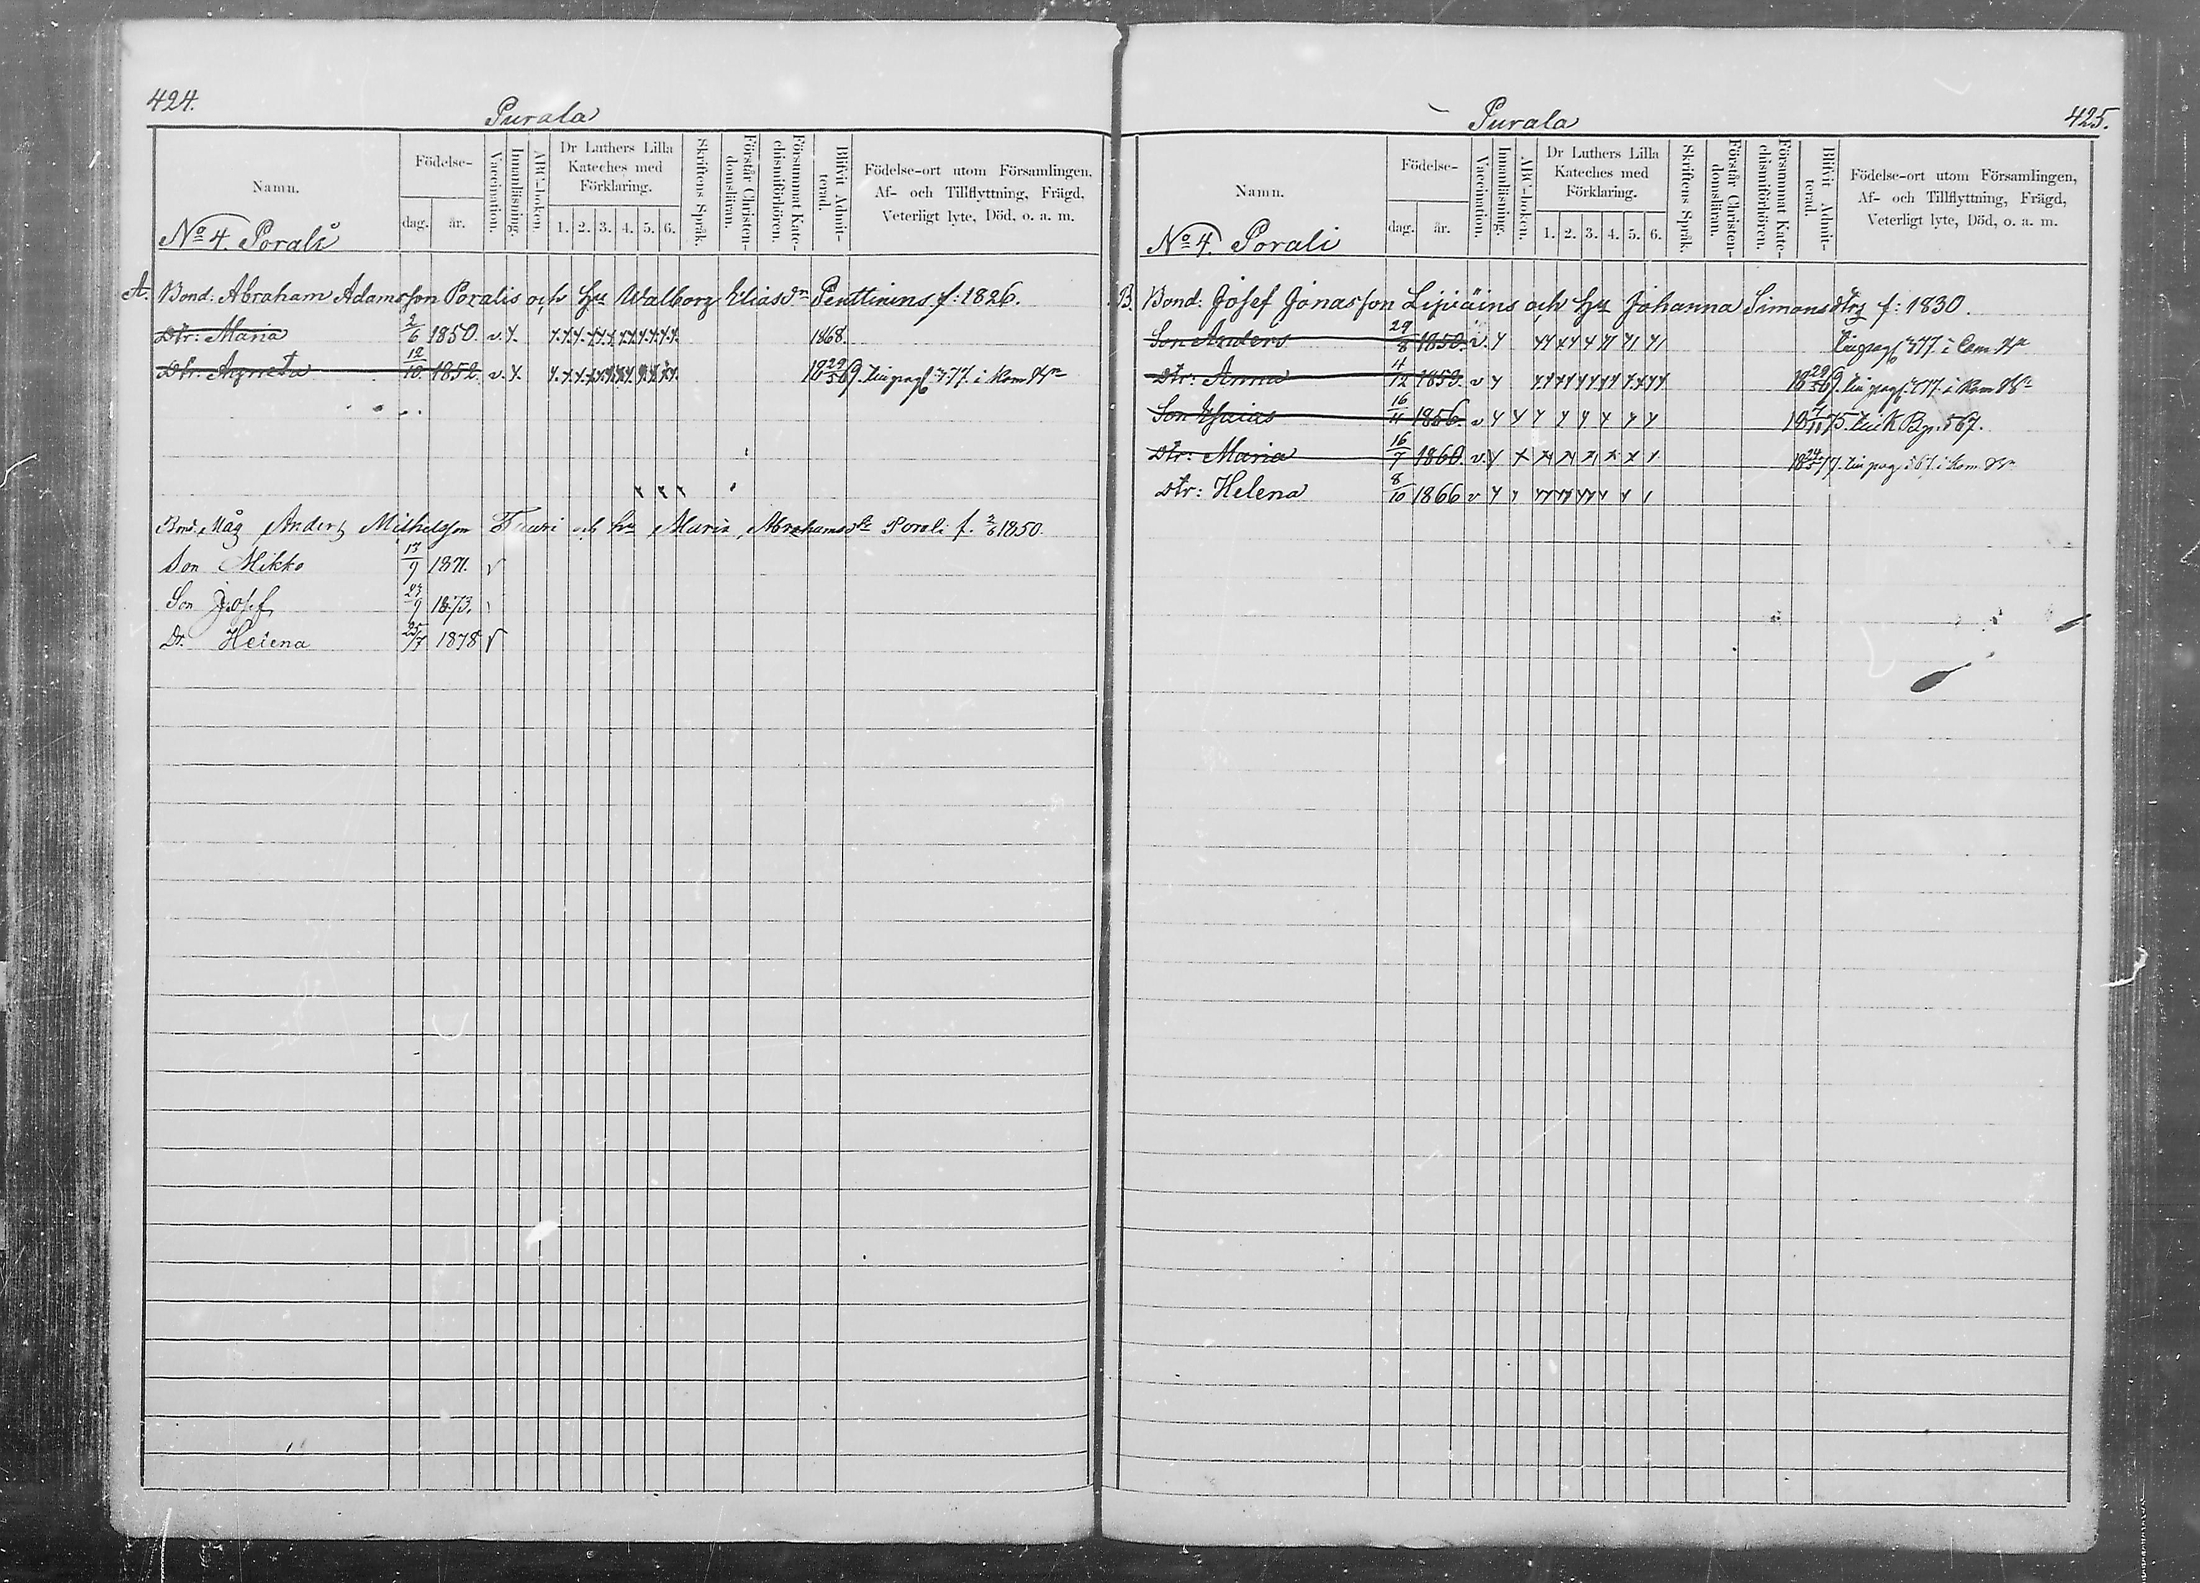 424.
Purala
Namn.
Födelse-
dag.
år.
Vaccination.
Innanläsning.
ABC-boken.
Dr Luthers Lilla
Kateches med
Förklaring.
1. 2. 3. 4. 5. 6.
Skriftens Språk.
Förstår Christen-
domsläran.
Försummat Kate-
chismiförhören.
Blifvit Admit-
terad.
Födelse-ort utom Församlingen,
Af- och Tillflyttning, Frägd,
Veterligt lyte, Död, o. a. m.
No 4. Porali
A. Bond: Abraham Adamsson Poralis och Hu Walborg Eliasdr Penttinens f: 1826.
Dtr: Maria 2/6 1850. v. 1868.
Dtr: Agneta 12/10. 1852. v. 18 29/5 69. 777. i Kom
Bond. Måg Anders Michelsson och hu Maria Abrahamsdtr Porali f. 2/6 1850.
Son Mikko 13/9 1871. v
Son Josef 23/9 1873.
Dr. Helena 25/7 1878 v
425.
Purala
Namn.
Födelse-
dag.
år.
Vaccination.
Innanläsning.
ABC-boken.
Dr Luthers Lilla
Kateches med
Förklaring.
1. 2. 3. 4. 5. 6.
Skriftens Språk.
Förstår Christen-
domsläran.
Försummat Kate-
chismiförhören.
Blifvit Admit-
terad.
Födelse-ort utom Församlingen,
Af- och Tillflyttning, Frägd,
Veterligt lyte, Död, o. a. m.
No 4. Porali
B. Bond: Josef Jonasson Lipiäins och Hu Johanna Simonsdtrs f: 1830.
Son Anders 29/8 1850. v. 777. i
Dtr: Anna 4/12 1853. v 18 29/5 69. 777. i Kom
Son Esaias 16/11 1856. v 75. K B p. 567.
Dtr: Maria 16/7 1860. v. 77. pag 567. i Kom
Dtr: Helena 8/10 1866 v